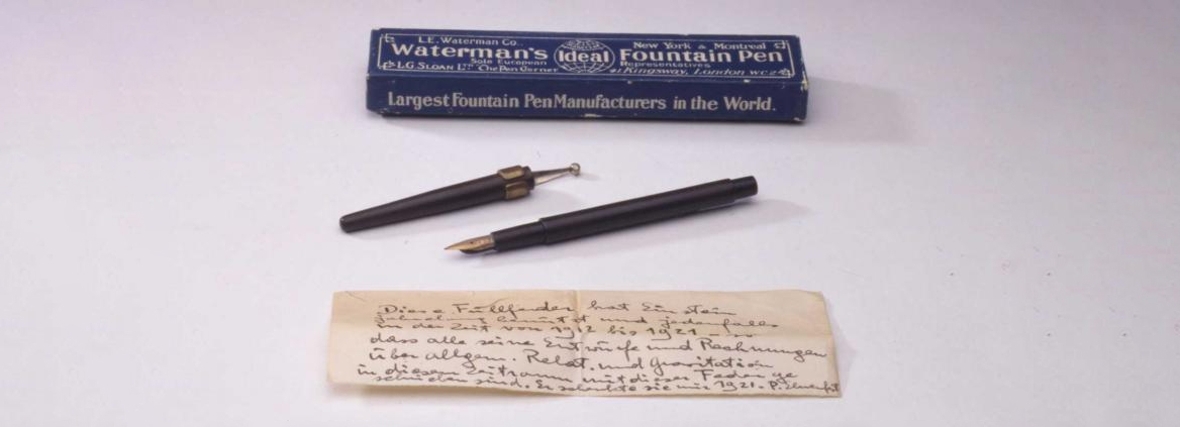 L.E. Waterman Co.. New York & Montreal
Waterman's Ideal Fountain Pen
Sole European Representatives
L.G. SLOAN LTD The Pen Corner Kingsway, London WC2
Largest Fountain Pen Manufacturers in the World.
Diese Füllfeder hat Einstein
benützt und jedenfalls
in der Zeit von 1912 bis 1921 — so
dass alle seine Entwürfe und Rechnungen
über allgem. Relat. und Gravitation
in diesem Zeitraum mit dieser Feder ge
schrieben sind. Er schenkte sie mir 1921. P. Ehrenfest